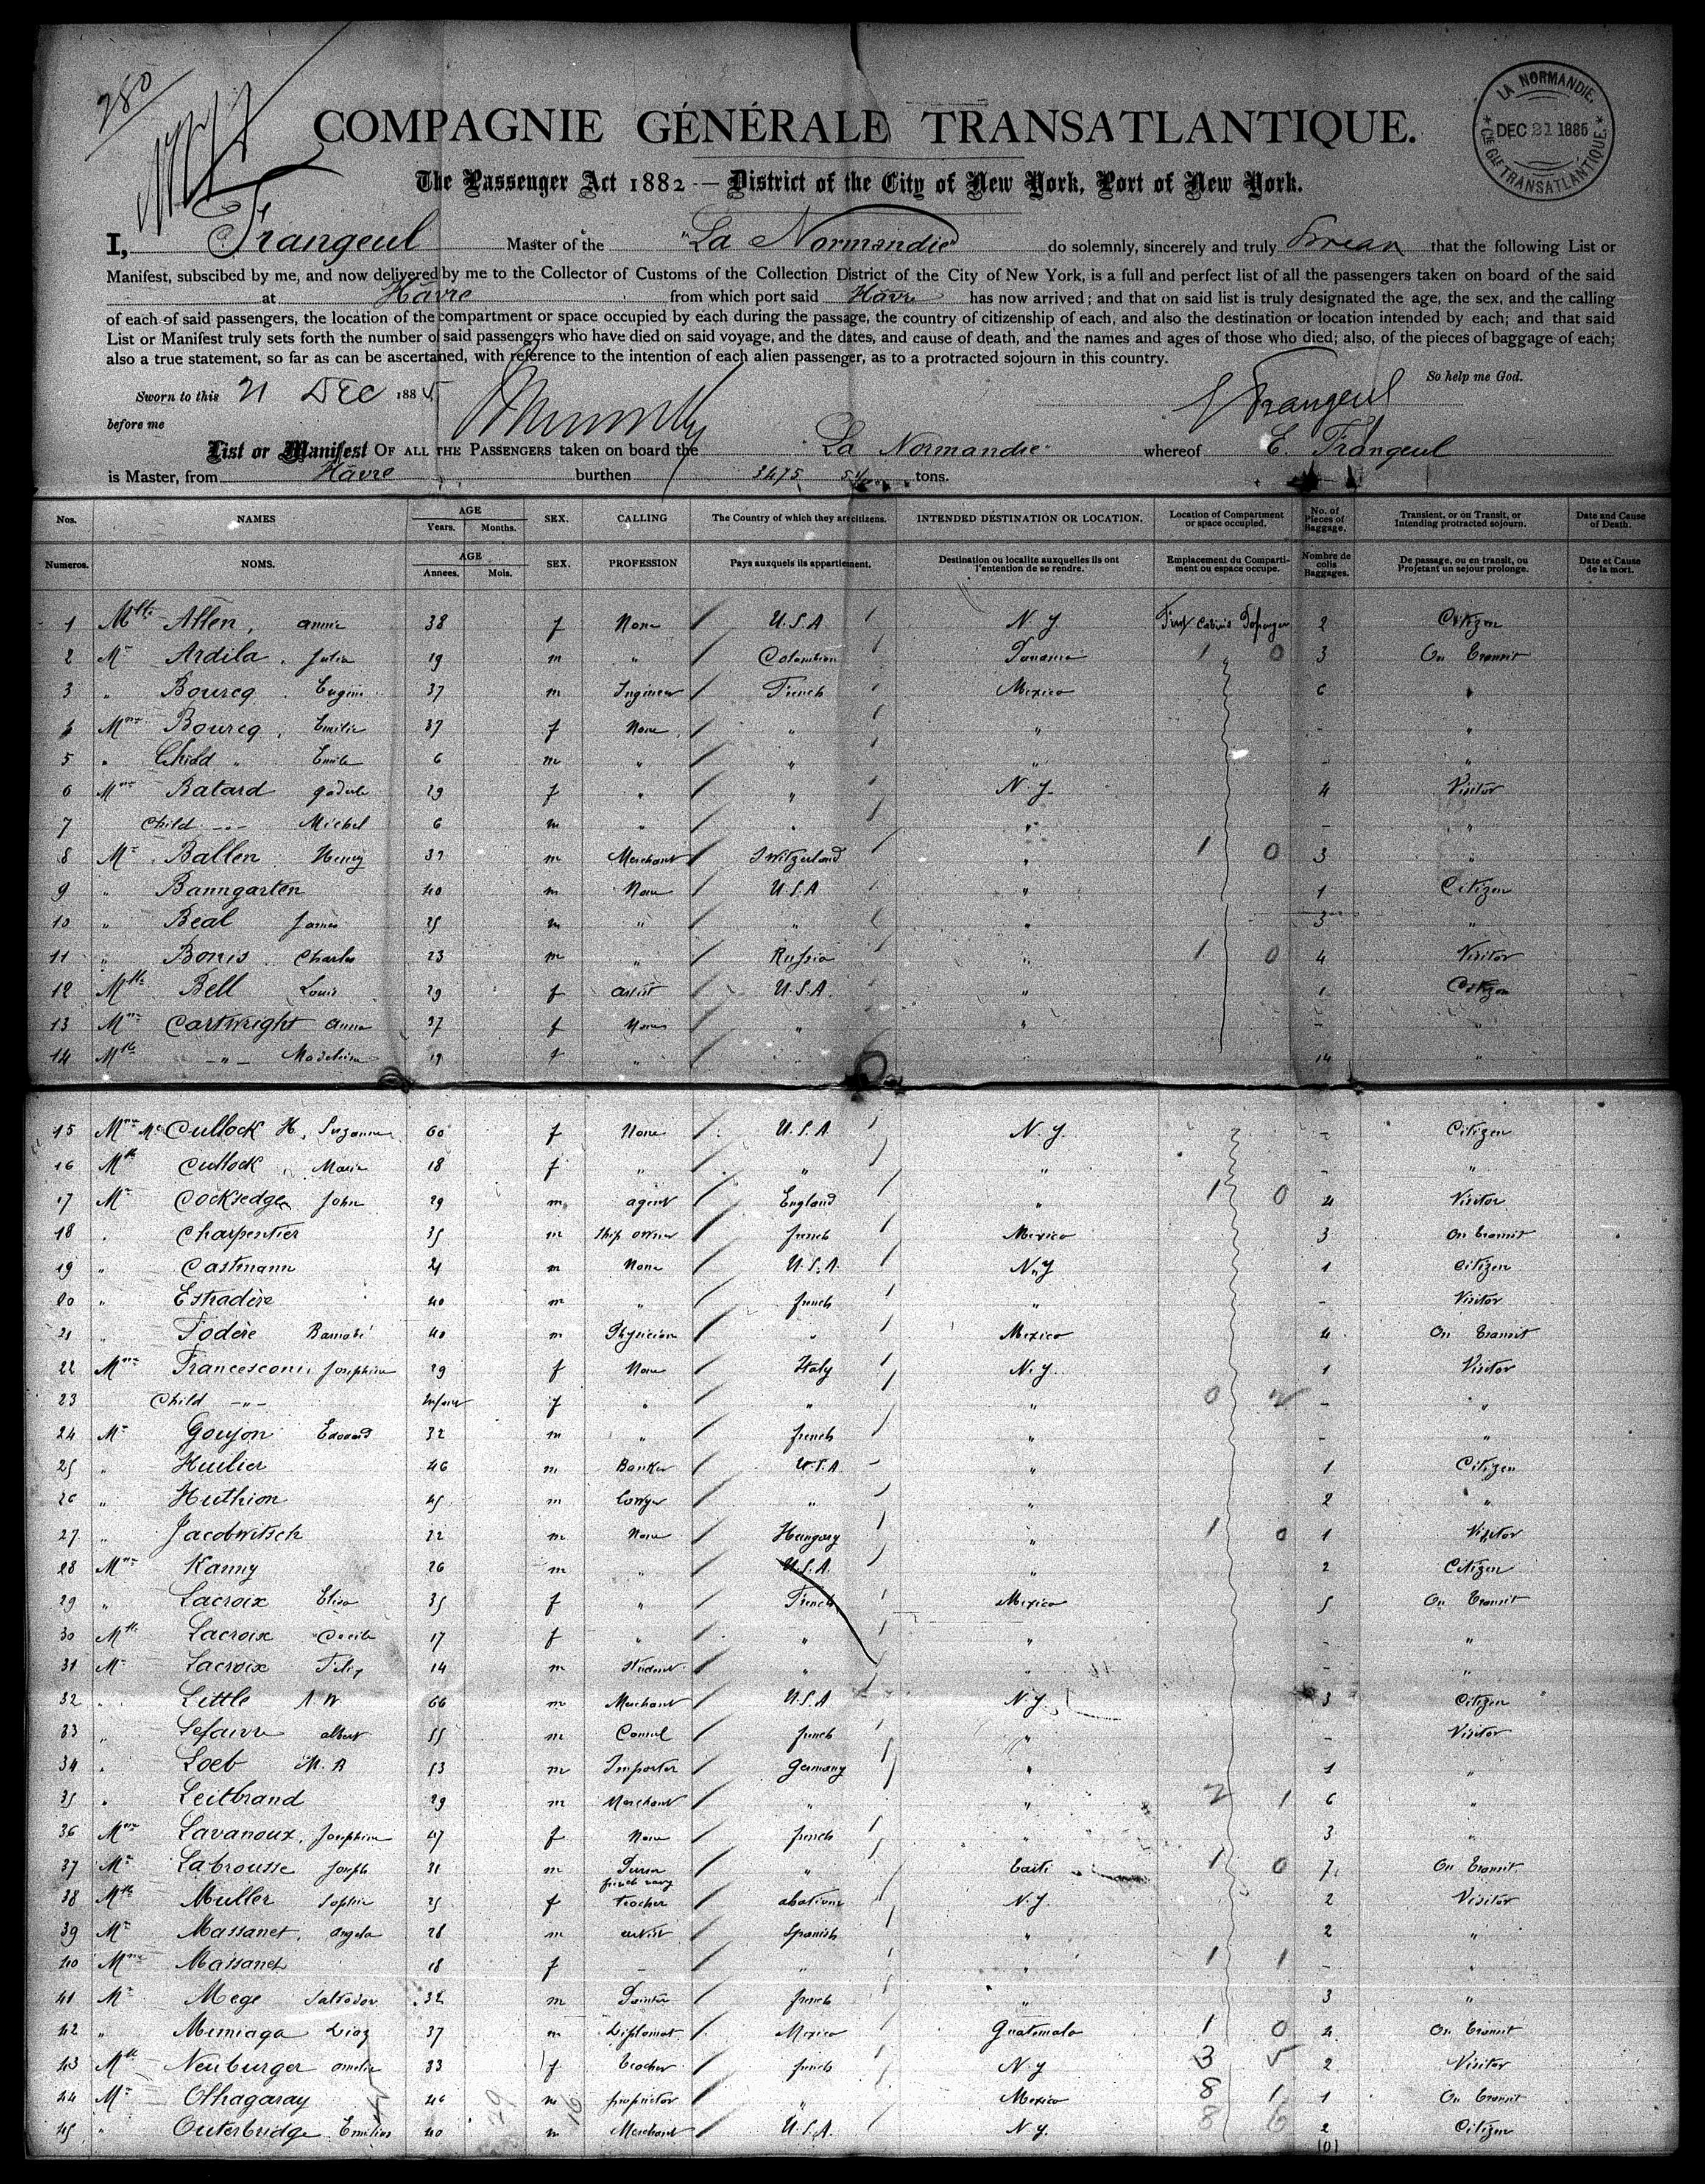 280
COMPAGNIE GÉNÉRALE TRANSATLANTIQUE.
LA NORMANDIE.
DEC 21 1885
* Cie Gle TRANSATLANTIQUE. *
The Passenger Act 1882 — District of the City of New York, Port of New York.
I, Frangeul Master of the "La Normandie" do solemnly, sincerely and truly Swear that the following List or
Manifest, subscibed by me, and now delivered by me to the Collector of Customs of the Collection District of the City of New York, is a full and perfect list of all the passengers taken on board of the said
at Hâvre from which port said Hâvre has now arrived; and that on said list is truly designated the age, the sex, and the calling
of each of said passengers, the location of the compartment or space occupied by each during the passage, the country of citizenship of each, and also the destination or location intended by each; and that said
List or Manifest truly sets forth the number of said passengers who have died on said voyage, and the dates, and cause of death, and the names and ages of those who died; also, of the pieces of baggage of each;
also a true statement, so far as can be ascertained, with reference to the intention of each alien passenger, as to a protracted sojourn in this country.
So help me God.
Sworn to this 21 Dec 1885
E Frangeul
before me
List or Manifest OF ALL THE PASSENGERS taken on board the La Normandie whereof E. Frangeul
is Master, from Hâvre burthen 3475 tons.
Nos. NAMES AGE Years. Months. SEX. CALLING The Country of which they are citizens. INTENDED DESTINATION OR LOCATION. Location of Compartment or space occupied. No. of Pieces of Baggage. Transient, or on Transit, or Intending protracted sojourn. Date and Cause of Death.
Numeros. NOMS. AGE Annees. Mois. SEX. PROFESSION Pays auxquels ils appartiennent. Destination ou localite auxquelles ils ont l'entention de se rendre. Emplacement du Comparti-ment ou espace occupe. Nombre de colis Baggages. De passage, ou en transit, ou Projetant un sejour prolonge. Date et Cause de la mort.
1 Mlle Allen, Annie 38 f None U.S.A N.Y First Cabins Passenger 2 Citizen
2 Mr Ardila, Julia 19 m " Colombian Panama 1 0 3 On Transit
3 " Bourcq Eugène 37 m Ingineer French Mexico 6 "
4 Mme Bourcq, Emilie 37 f None " " - "
5 " Child " Emile 6 m " " " - "
6 Mme Batard 29 f " " N.Y. 4 Visitor
7 Child -"- Michel 6 m " " " - "
8 Mr Ballen Henry 37 m Merchant Switzerland " 1 0 3 "
9 " Banngarten 40 m None U.S.A " 1 Citizen
10 " Beal James 25 m " " " 3 "
11 " Bonis Charles 23 m " Russia " 1 0 4 Visitor
12 Mlle Bell Louis 29 f artist U.S.A. " 1 Citizen
13 Mme Cartwright Anna 37 f None " " - "
14 Mlle -"- Madeleine 19 f " " 14 "
15 Mme Mc Cullock H, Suzanne 60 f None U.S.A N.Y. - Citizen
16 Mlle Cullock, Marie 18 f " " " - "
17 Mr Cocksedge John 29 m agent England " 1 0 4 Visitor
18 " Charpentier 35 m Ship owner french Mexico 3 On transit
19 " Castmann 21 m None U.S.A. N.Y 1 Citizen
20 " Estradère 40 m " french " - Visitor
21 " Fodère Barnabé 40 m Physician " Mexico 4 On transit
22 Mme Francesconi, Josephine 29 f None Italy N.Y. 1 Visitor
23 Child -"- Infant f " " " 0 2 - "
24 Mr Goujon Edouard 32 m " french " - "
25 " Huilier 46 m Banker U.S.A " 1 Citizen
26 " Huthion 45 m Lawyer " " 2 "
27 " Jacobwitsch 22 m None Hungary " 1 0 1 Visitor
28 Mme Kanny 26 m " U.S.A. " 2 Citizen
29 " Lacroix Elisa 35 f " French Mexico 5 On Transit
30 Mlle Lacroix Cecile 17 f " " " - "
31 Mr Lacroix Felix 14 m Student " " - "
32 " Little A.W 66 m Merchant U.S.A N.Y. 3 Citizen
33 " Lefaivre albert 55 m Consul french " - Visitor
34 " Loeb M.B 53 m Importer Germany " 1 "
35 " Leitbrand 29 m Merchant " " 2 1 6 "
36 Mme Lavanoux, Josephine 47 f None french " 3 "
37 Mr Labrousse Joseph 31 m french navy " 1 0 7 On Transit
38 Mlle Muller Sophie 25 f teacher N.Y. 2 Visitor
39 Mr Massanet, Angelo 28 m artist Spanish " 2 "
40 Mme Massanet 18 f - " " 1 1 - "
41 Mr Mege Salvador 32 m Painter french " 3 "
42 " Mimiaga Diaz 37 m Diplomat Mexico Guatemala 1 0 4 On transit
43 Mlle Neuburger Amelie 33 f teacher french N.Y 3 5 2 Visitor
44 Mr Othagaray 46 m proprietor " Mexico 8 1 1 On transit
45 " Outerbridge Emilius 40 m Merchant U.S.A. N.Y. 8 6 2 Citizen
29 16 101